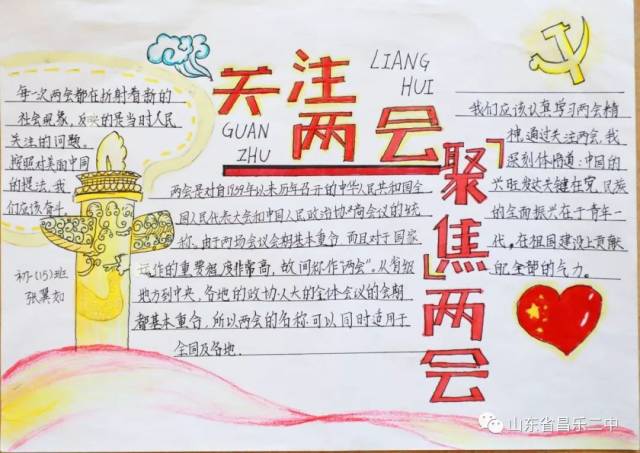 关注
两会
LIANG
HUI
GUAN
ZHU
聚焦两会
每一次两会都在折射着新的
社会现象，反映的是当时人民
关注的问题。
按照对美丽中国
的提法，我
们应该奋斗。
初一(15)班
张翼如
两会是对自1959年以来历年召开的中华人民共和国全
国人民代表大会和中国人民政治协商会议的统
称。由于两场会议会期基本重合，而且对于国家
运作的重要程度非常高，故简称作“两会”。从省级
地方到中央，各地的政协、人大的全体会议的会期
都基本重合，所以两会的名称可以同时适用于
全国及各地.
我们应该认真学习两会精
神，通过关注两会，我
深刻体悟道：中国的
兴旺发达关键在党，民族
的全面振兴在于青年一
代，在祖国建设上贡献
自己全部的气力。
山东省昌乐二中